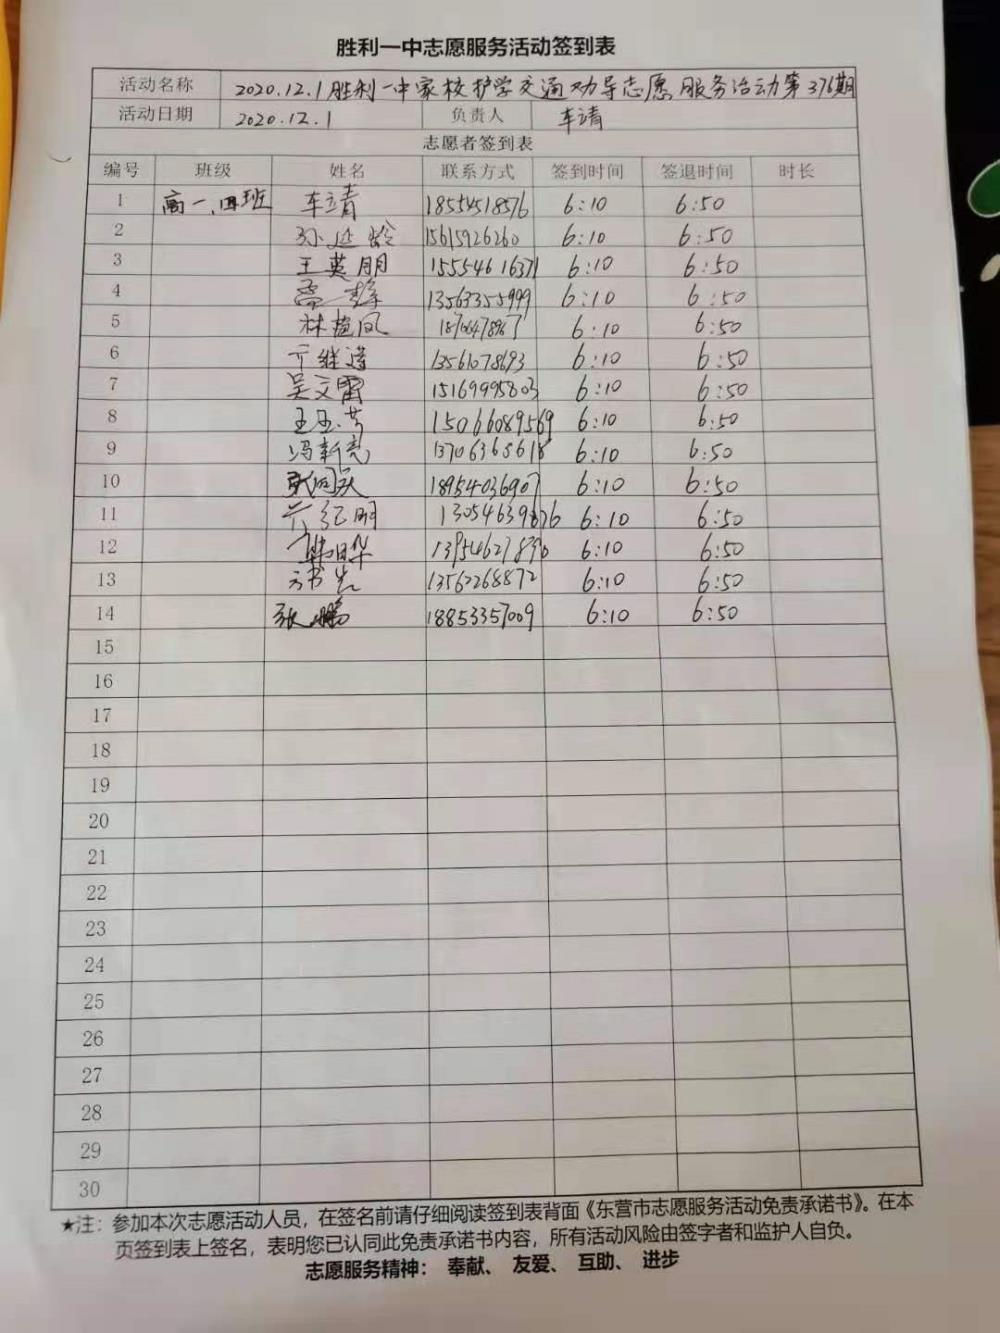 胜利一中志愿服务活动签到表
活动名称 2020.12.1胜利一中家校护学交通劝导志愿服务活动第376期
活动日期 2020.12.1 负责人 车靖
志愿者签到表
编号 班级 姓名 联系方式 签到时间 签退时间 时长
1 高一.四班 车靖 18554518576 6:10 6:50
2 孙延龄 15615926260 6:10 6:50
3 王英朋 15554616371 6:10 6:50
4 13563355999 6:10 6:50
5 6:10 6:50
6 13561078693 6:10 6:50
7 吴文雷 15169995803 6:10 6:50
8 王玉芳 15066089569 6:10 6:50
9 冯新亮 13706368618 6:10 6:50
10 18954036907 6:10 6:50
11 13054639876 6:10 6:50
12 6:10 6:50
13 13562268872 6:10 6:50
14 张鹏 18853357009 6:10 6:50
15
16
17
18
19
20
21
22
23
24
25
26
27
28
29
30
★注：参加本次志愿活动人员，在签名前请仔细阅读签到表背面《东营市志愿服务活动免责承诺书》。在本
页签到表上签名，表明您已认同此免责承诺书内容，所有活动风险由签字者和监护人自负。
志愿服务精神： 奉献、 友爱、 互助、 进步